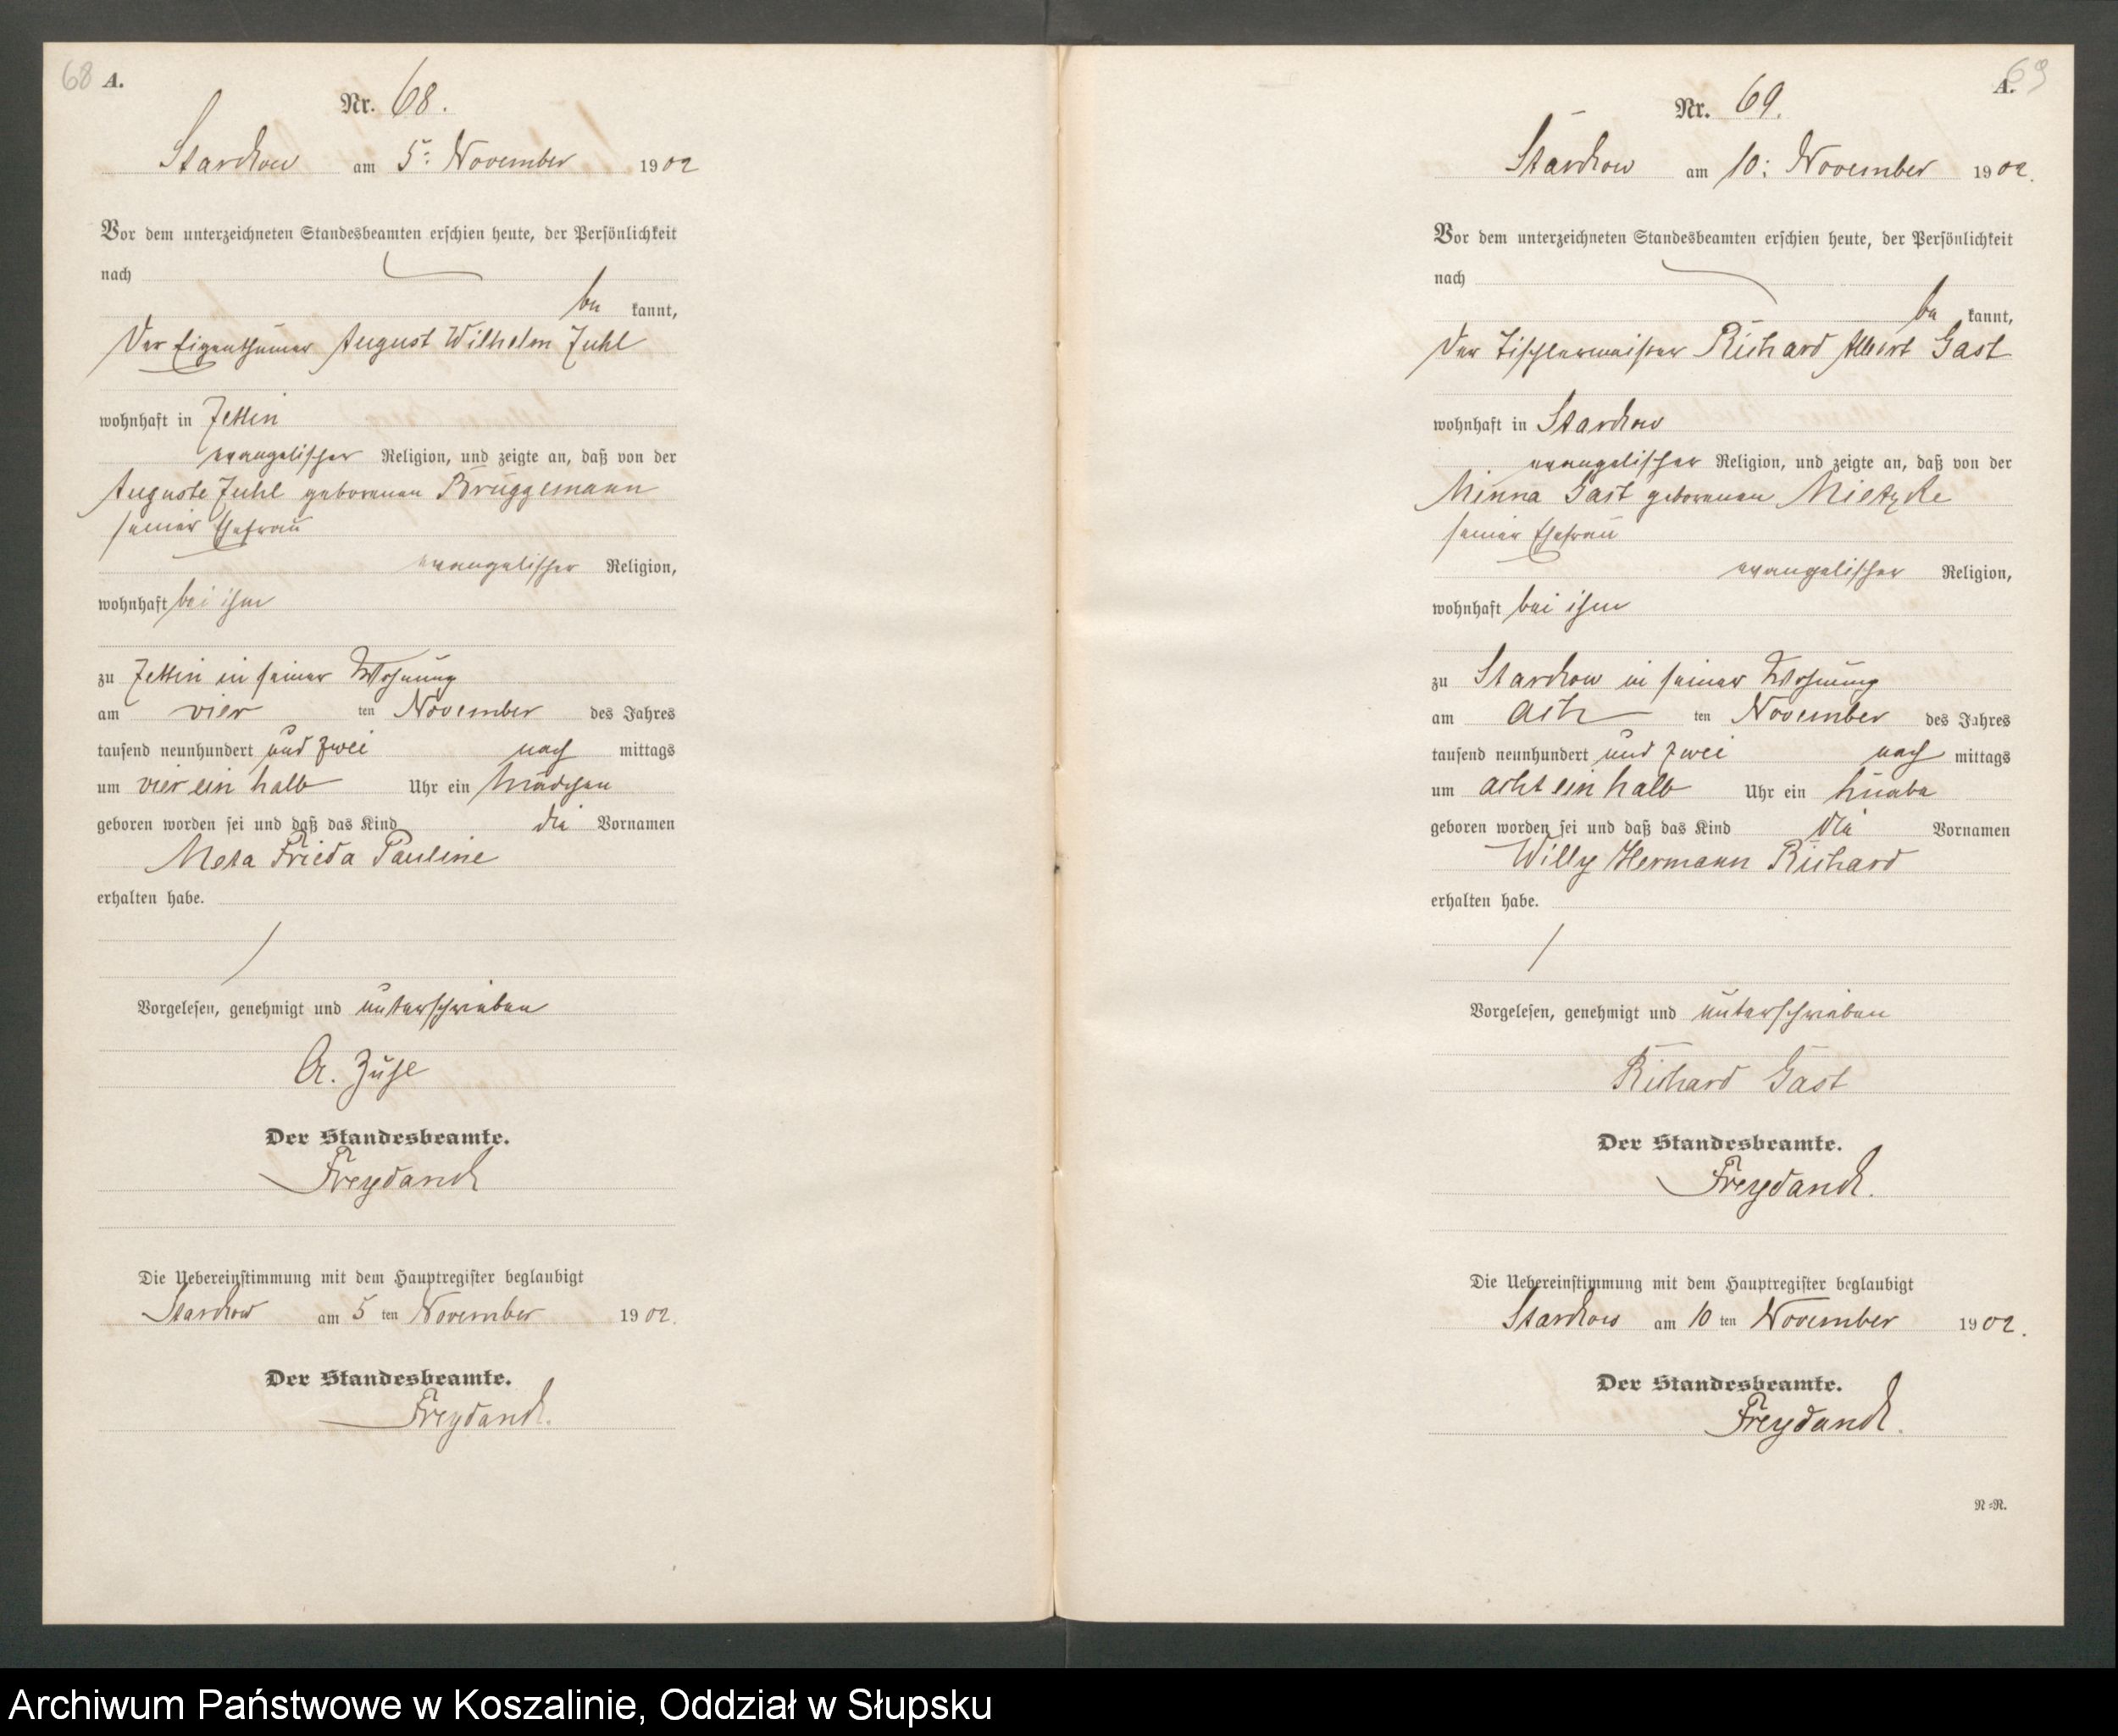 68 A.
Nr. 68.
Starckow am 5ᵗ November 1902
Vor dem unterzeichneten Standesbeamten erschien heute, der Persönlichkeit
nach
be kannt,
der Eigenthümer August Wilhelm Zuhl
wohnhaft in Zettin
evangelischer Religion, und zeigte an, daß von der
Auguste Zuhl geborenen Brüggemann
seiner Ehefrau
evangelischer Religion,
wohnhaft bei ihm
zu Zettin in seiner Wohnung
am vier ten November des Jahres
tausend neunhundert und zwei nach mittags
um vier ein halb Uhr ein Mädchen
geboren worden sei und daß das Kind die Vornamen
Meta Frieda Pauline
erhalten habe.
Vorgelesen, genehmigt und unterschrieben
Der Standesbeamte.
Freydanck
Die Uebereinstimmung mit dem Hauptregister beglaubigt
Starckow am 5 ten November 1902.
Der Standesbeamte.
Freydanck.
A. 69
Nr. 69.
Starckow am 10: November 1902.
Vor dem unterzeichneten Standesbeamten erschien heute, der Persönlichkeit
nach
be kannt,
der Tischlermeister Richard Albert Gast
wohnhaft in Starckow
evangelischer Religion, und zeigte an, daß von der
Minna Gast geborenen Mietzke
seiner Ehefrau
evangelischer Religion,
wohnhaft bei ihm
zu Starckow in seiner Wohnung
am ach ten November des Jahres
tausend neunhundert und zwei nach mittags
um acht ein halb Uhr ein Knabe
geboren worden sei und daß das Kind die Vornamen
Willy Hermann Richard
erhalten habe.
Vorgelesen, genehmigt und unterschrieben
Richard Gast
Der Standesbeamte.
Freydanck.
Die Uebereinstimmung mit dem Hauptregister beglaubigt
Starckow am 10 ten November 1902.
Der Standesbeamte.
Freydanck.
N=R.
Archiwum Państwowe w Koszalinie, Oddział w Słupsku